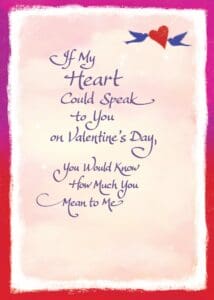 If My
Heart
Could Speak
to You
on Valentine's Day,
You Would Know
How Much You
Mean to Me